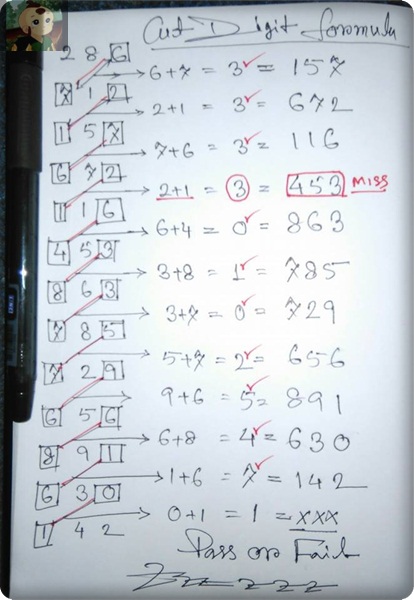 Cut Digit formula
2 8 6
6+7 = 3 = 157
7 1 2
2+1 = 3 = 672
1 5 7
7+6 = 3 = 116
6 7 2
2+1 = 3 = 453 MISS
1 1 6
6+4 = 0 = 863
4 5 3
3+8 = 1 = 785
8 6 3
3+7 = 0 = 729
7 8 5
5+7 = 2 = 656
7 2 9
9+6 = 5 = 891
6 5 6
6+8 = 4 = 630
8 9 1
1+6 = 7 = 142
6 3 0
0+1 = 1 = XXX
1 4 2
Pass or Fail